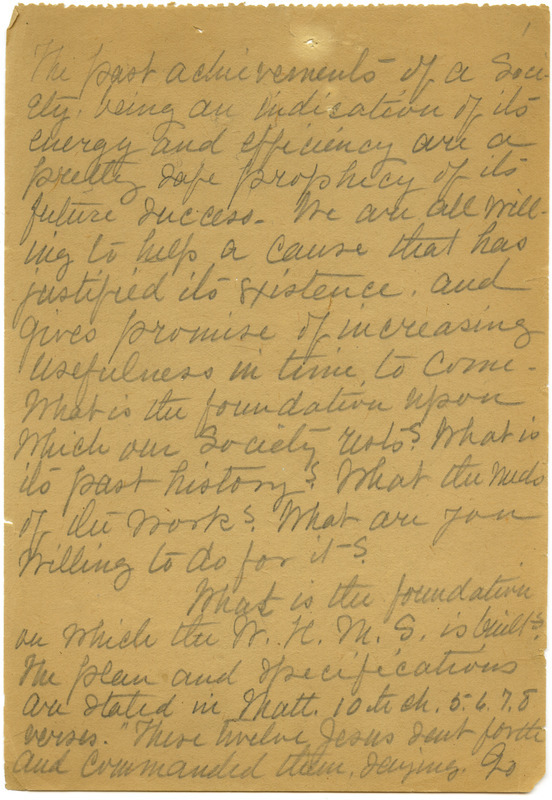 1
The past achievements of a Soci
ety, being an indication of its
energy and efficiency are a
pretty safe prophecy of its
future success- We are all will-
ing to help a cause that has
justified its existence, and
gives promise of increasing
usefulness in time to come-
What is the foundation upon
which our Society rests? What is
its past history? What the needs
of the work? What are you
willing to do for it-?
What is the foundation
on which the W. H. M. S. is built?
The plan and specifications
are stated in Matt. 10th ch. 5. 6. 7. 8
verses. "These twelve Jesus sent forth
and commanded them, saying, Go